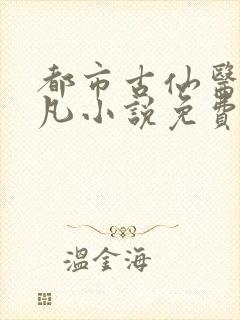 都市古仙醫
凡小說免費
溫金海